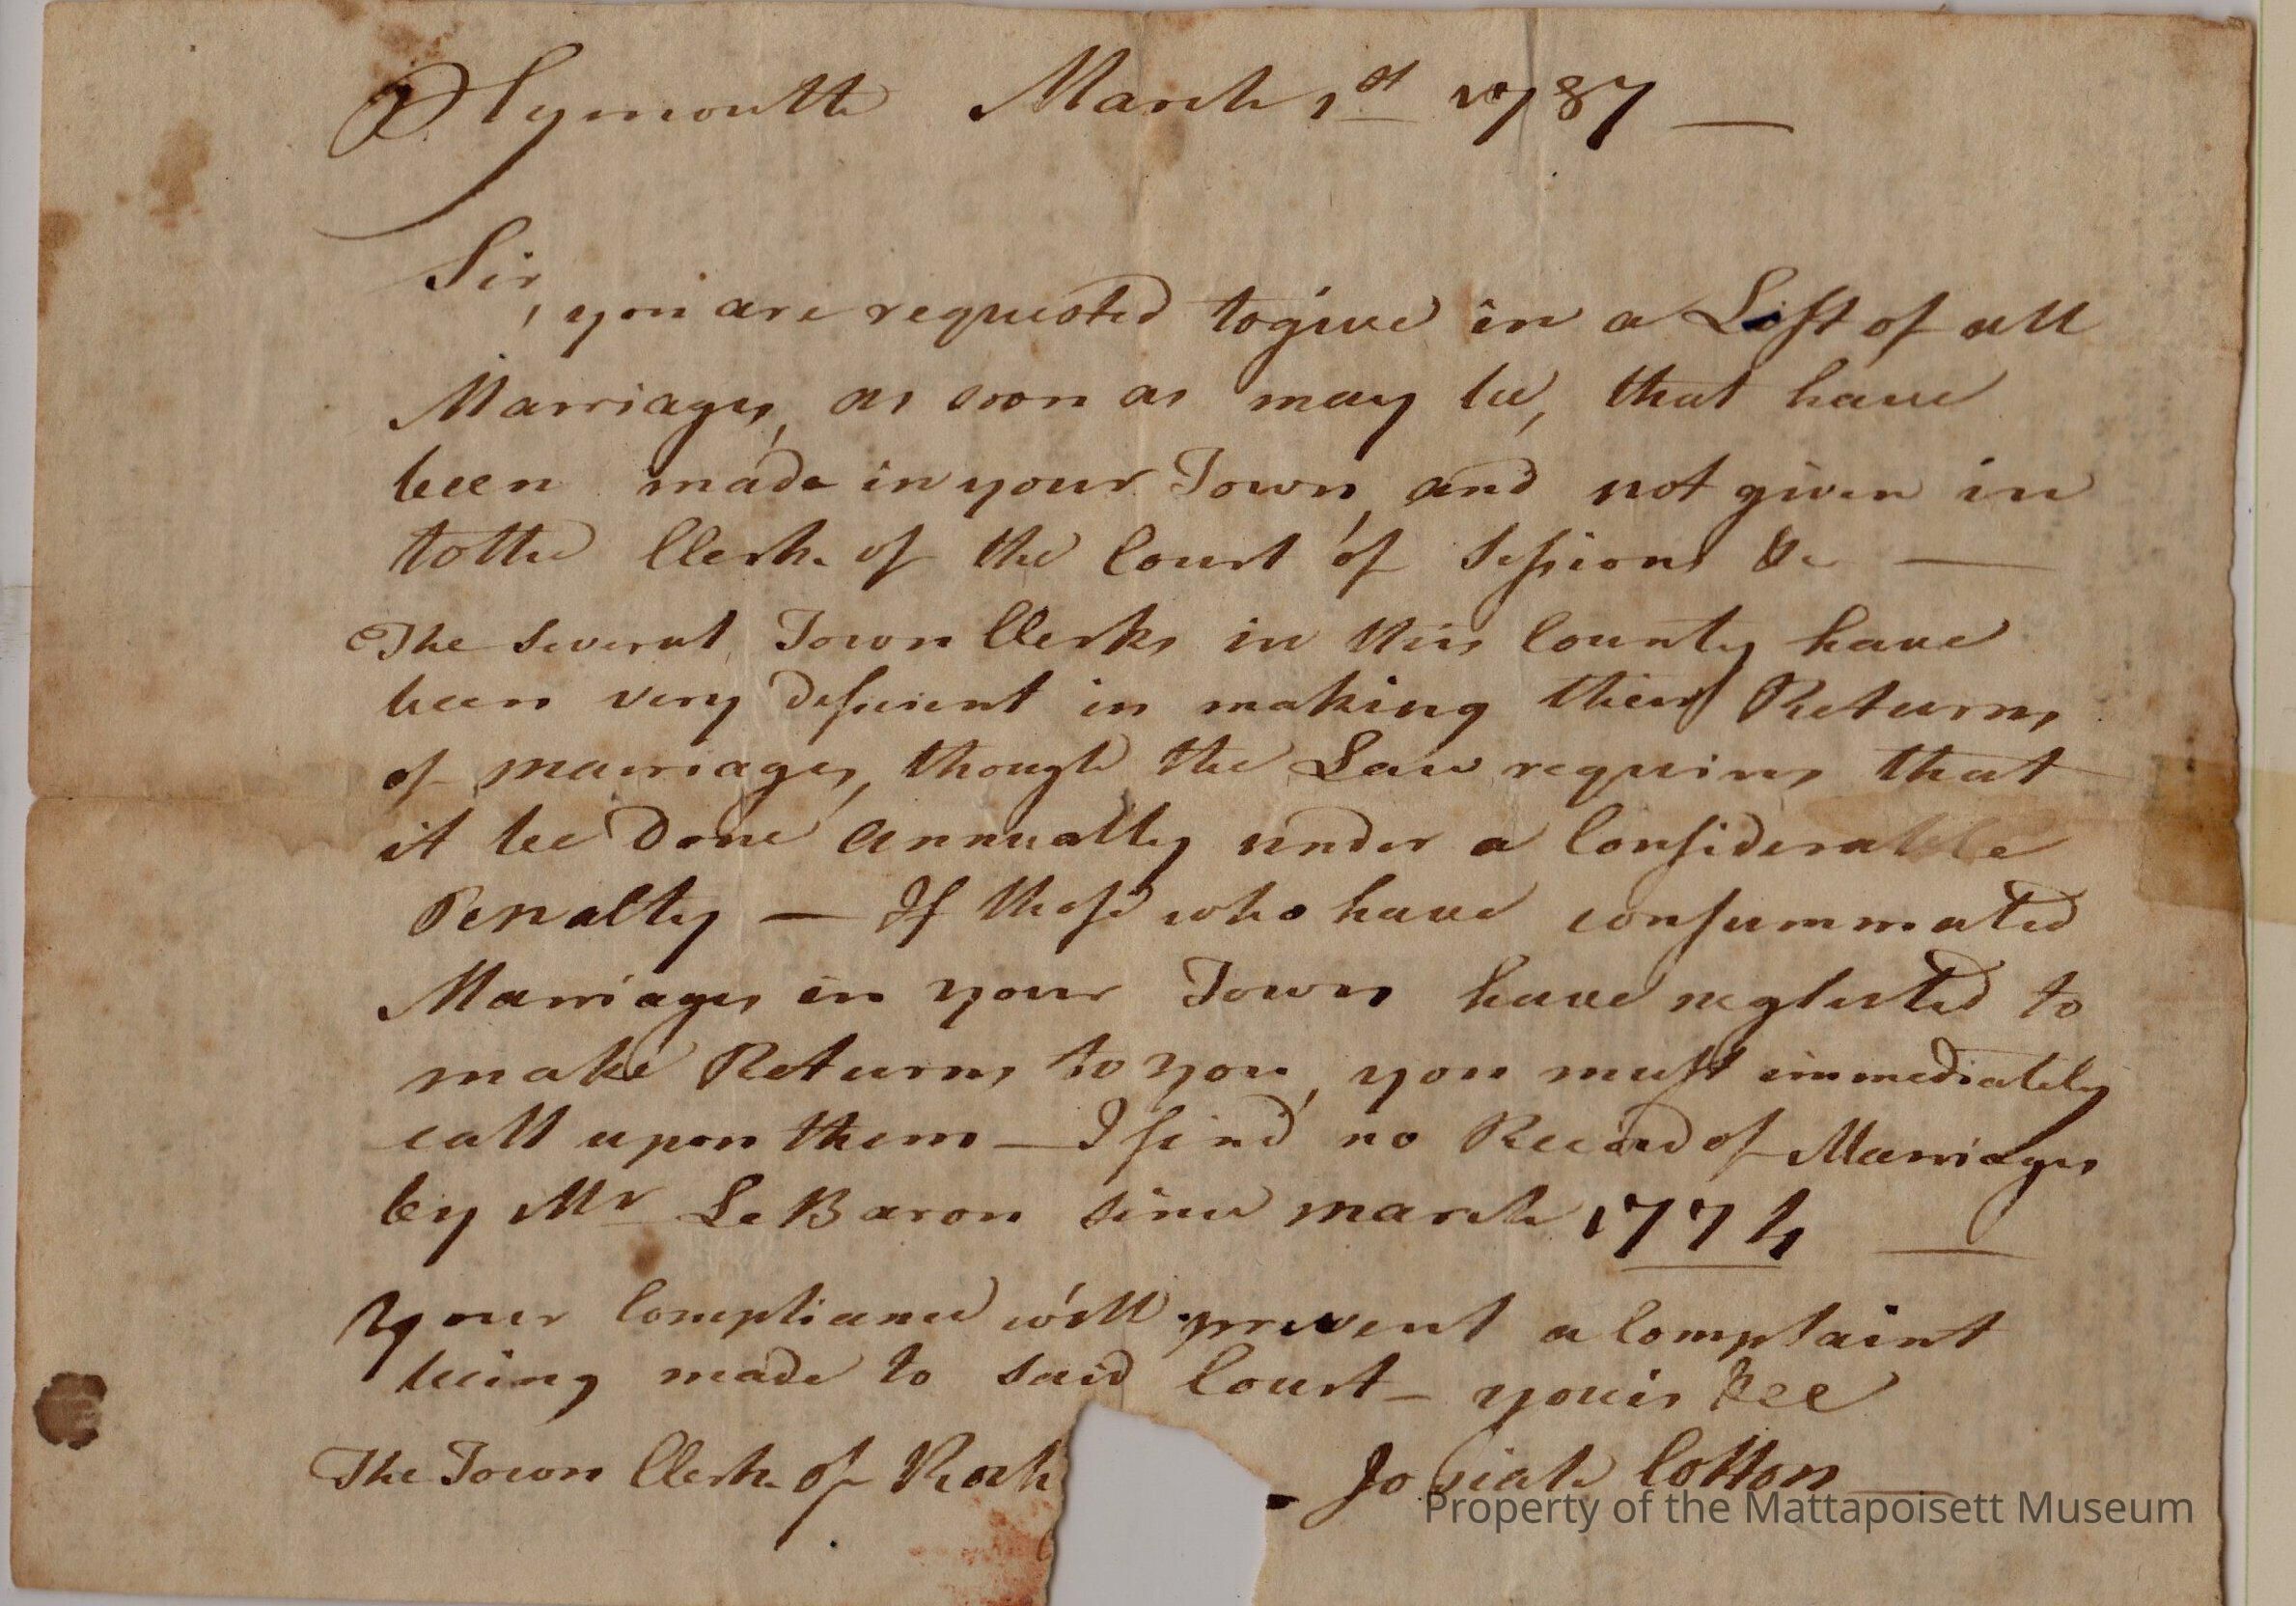 Plymouth March 1st 1787 —
Sir,
you are requested to give in a List of all
Marriages, as soon as may be, that have
been made in your Town, and not given in
to the Clerk of the Court of Sessions &c —
The several Town Clerks in this County have
been very deficient in making their Returns
of marriages, though the Law requires that
it be Done annually under a Considerable
Penalty — If those who have consummated
Marriages in your Town have neglected to
make Returns to you, you must immediately
call upon them — I find no Record of Marriages
by Mr Le Baron since march 1774 —
Your Compliance will prevent a Complaint
being made to said Court — yours &ce
The Town Clerk of Roch — Josiah Cotton —
Property of the Mattapoisett Museum